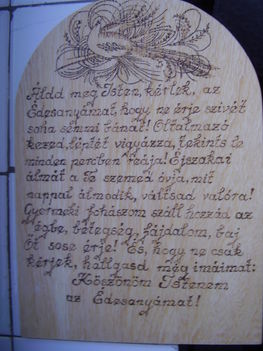 Áldd meg Isten, kérlek, az
Édesanyámat, hogy ne érje szívét
soha semmi bánat! Oltalmazó
kezed, léptét vigyázza, tekints le
minden percben reája! Éjszakai
álmát a Te szemed óvja, mit
nappal álmodik, váltsad valóra!
Gyermeki fohászom szállt hozzád az
égbe, betegség, fájdalom, baj
Őt sose érje! És, hogy ne csak
kérjek, hallgasd meg imáimat:
Köszönöm Istenem
az Édesanyámat!